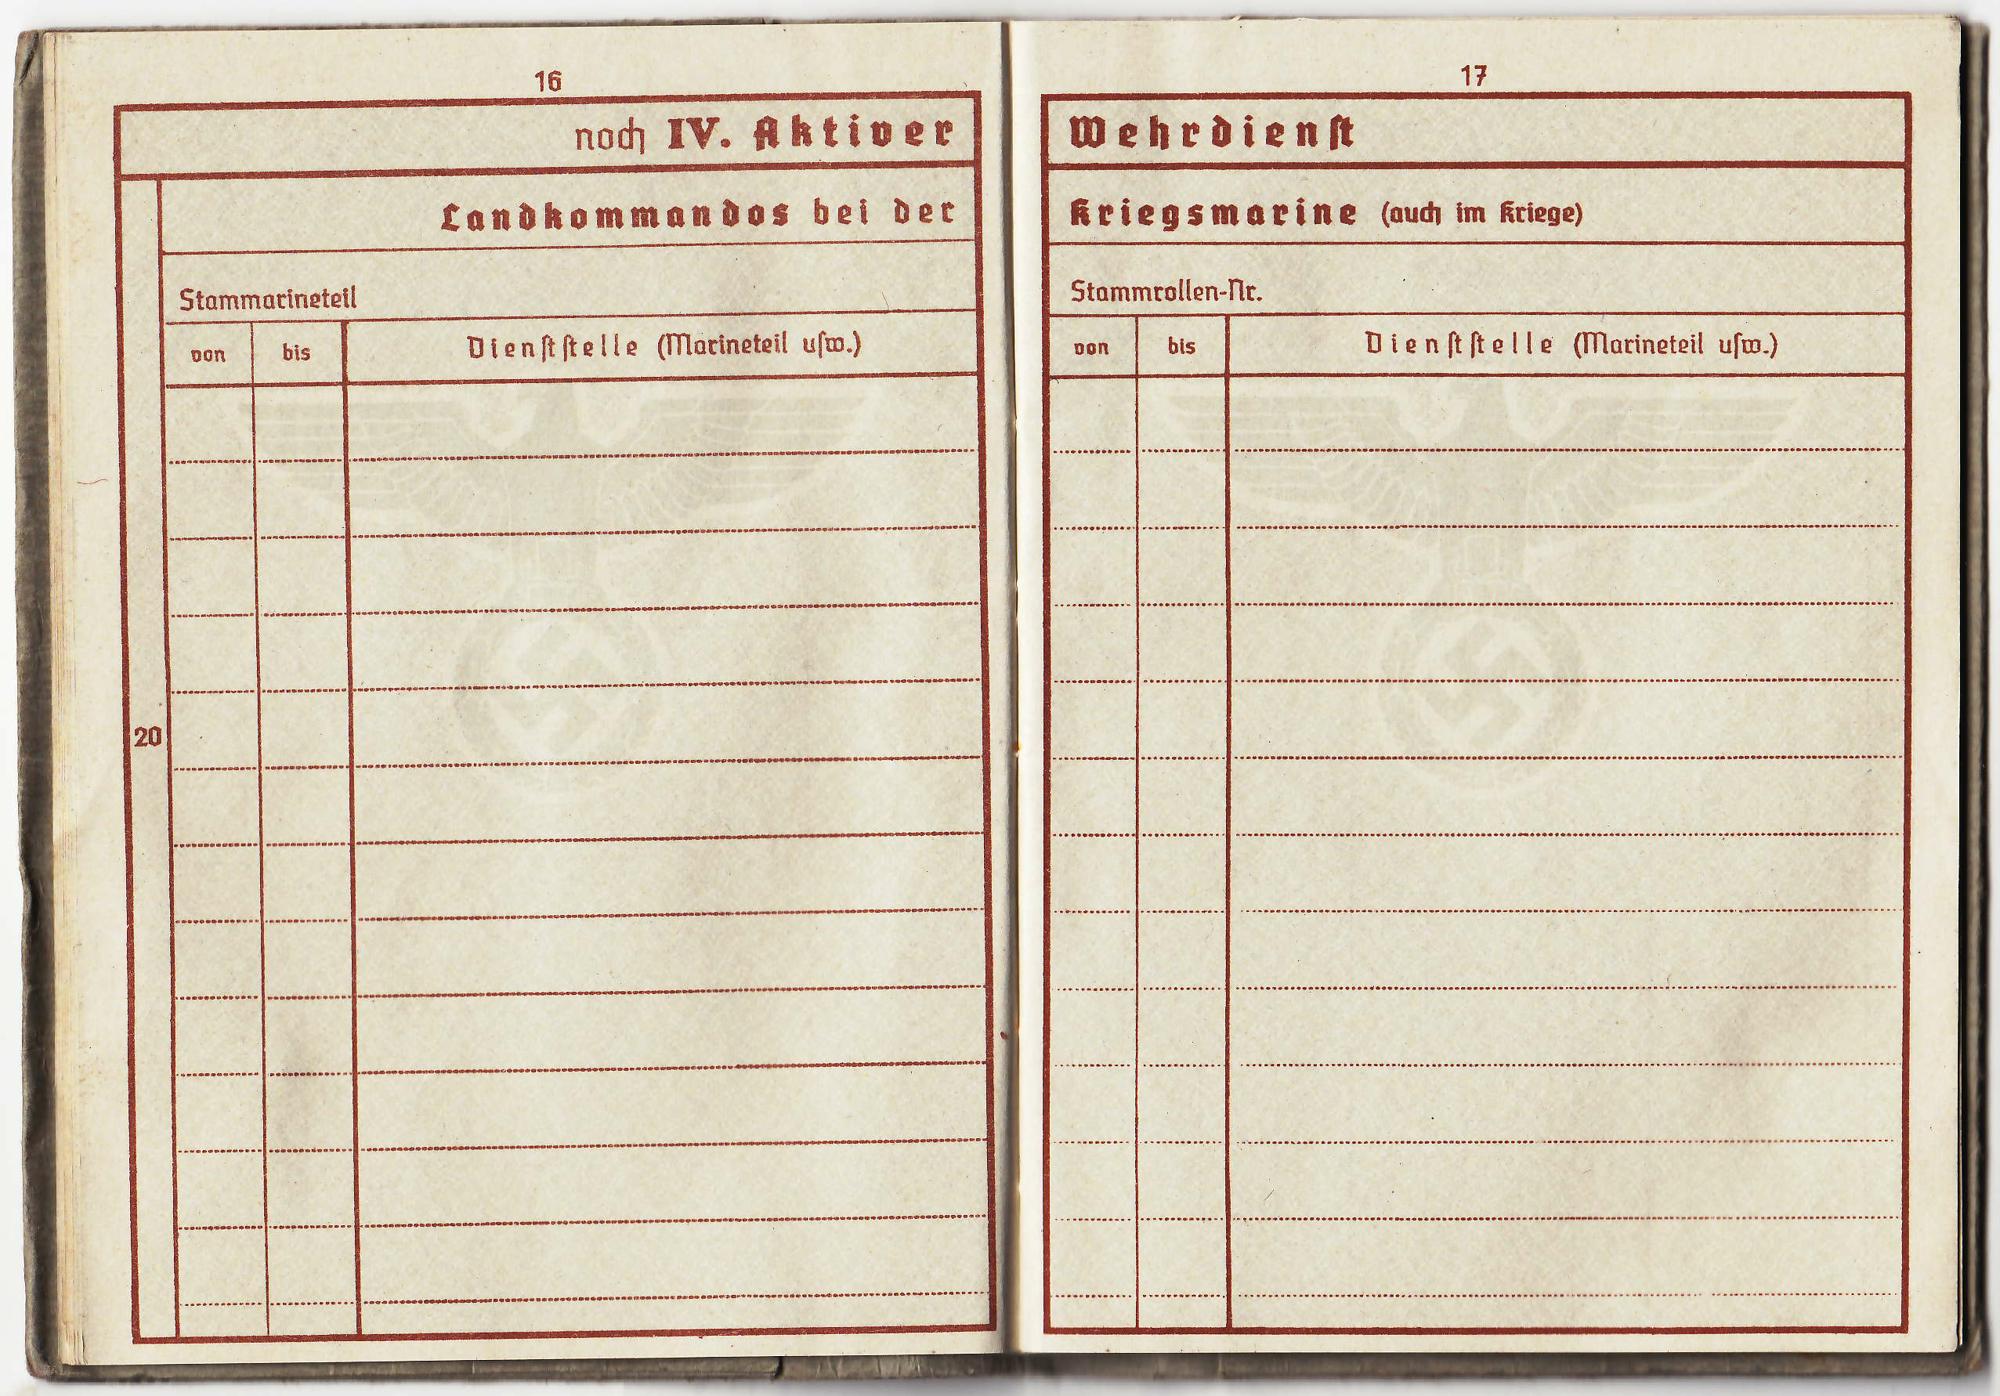 16
noch IV. Aktiver
Landkommandos bei der
Stammarineteil
von bis Dienststelle (Marineteil usw.)
20
17
Wehrdienst
Kriegsmarine (auch im Kriege)
Stammrollen-Nr.
von bis Dienststelle (Marineteil usw.)